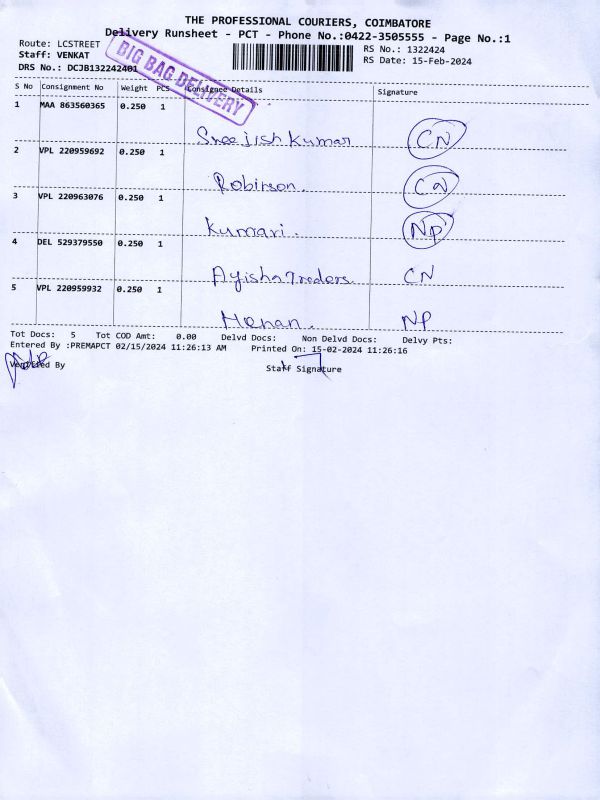 THE PROFESSIONAL COURIERS, COIMBATORE
Delivery Runsheet - PCT - Phone No.:0422-3505555 - Page No.:1
Route: LCSTREET
Staff: VENKAT
DRS No.: DCJB132242401
BIG BAG DELIVERY
RS No.: 1322424
RS Date: 15-Feb-2024
S No Consignment No Weight PCS Consignee Details Signature
1 MAA 863560365 0.250 1
Sreejish kumar CN
2 VPL 220959692 0.250 1
Robinson. CN
3 VPL 220963076 0.250 1
Kumari. NP
4 DEL 529379550 0.250 1
Ayisha Traders CN
5 VPL 220959932 0.250 1
NP
Tot Docs: 5 Tot COD Amt: 0.00 Delvd Docs: Non Delvd Docs: Delvy Pts:
Entered By :PREMAPCT 02/15/2024 11:26:13 AM Printed On: 15-02-2024 11:26:16
Verified By Staff Signature